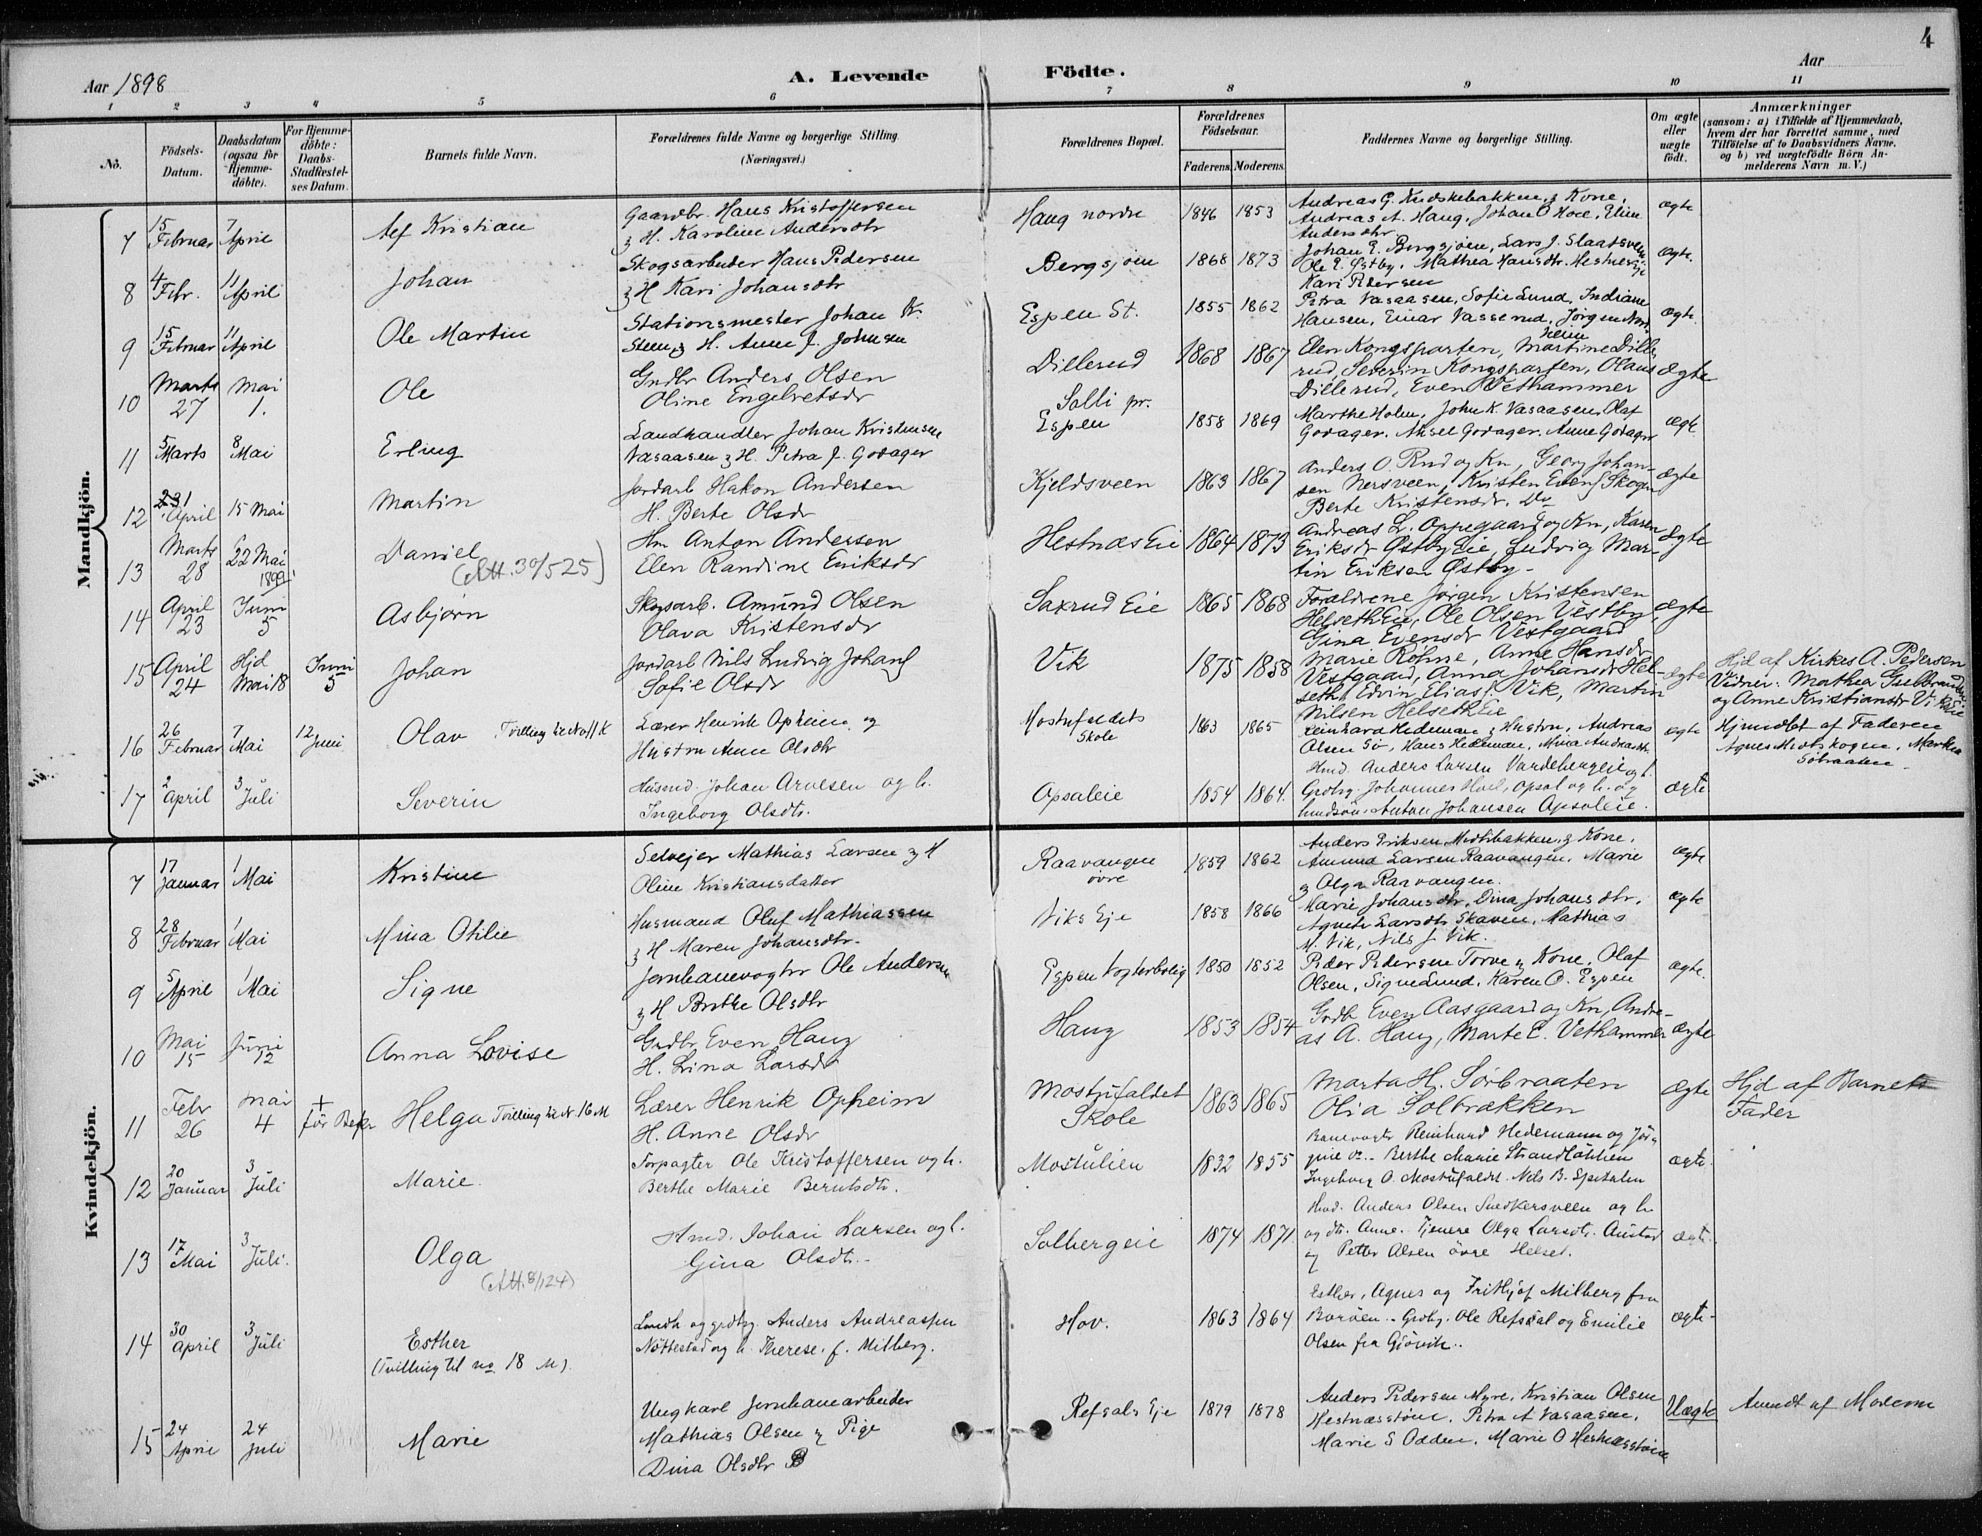 4
Aar 1898
A. Levende
Födte.
Aar
1 2 3 4 5 6 7 8 9 10 11
No.
Födsels-Datum.
Daabsdatum (ogsaa for Hjemme-döbte).
For Hjemme-döbte: Daabs-Stadfæstel-ses Datum.
Barnets fulde Navn.
Forældrenes fulde Navne og borgerlige Stilling.
(Næringsvei.)
Forældrenes Bopæl.
Forældrenes Födselsaar.
Faderens. Moderens.
Faddernes Navne og borgerlige Stilling.
Om ægte eller uægte födt.
Anmærkninger
(saasom: a) i Tilfælde af Hjemmedaab,
hvem der har forrettet samme, med
Tilföielse af to Daabsvidners Navne,
og b) ved uægtefödte Börn An-
melderens Navn m. V.)
Mandkjön.
7 15 Februar 7 April Alf Kristian Gaardbr. Hans Kristoffersen
& H. Karoline Andersdtr
Haug nordre 1846 1853 Andreas G. Kudskebakken & Kone,
Andreas A. Haug, Johan O Hoel, Elina
Andersdtr.
ægte
8 4 Febr. 11 April Johan Skogsarbeider Hans Pedersen
& H Kari Johansdtr
Bergsjöen 1868 1873 Johan E. Bergsjöen, Lars J. Slaatsveen
Ole E. Östby, Mathea Hansdtr. Hestnæseje
Kari Pedersen
ægte.
9 15 Februar 11 April Ole Martin Stationsmester Johan Kr.
Steen & H. Anne J. Johnsen
Espen St. 1855 1862 Petra Vasaasen, Sofie Lund, Indiane
Hansen, Einar Vasserud, Jörgen Nord-
ægte.
10 Marts 27 Mai 1. Ole Grdbr Anders Olsen
Oline Engebretsdr
Dillerud 1868 1867 Elen Kongsparten, Martine Dille
rud, Severin Kongsparten, Olaus
Dillerud, Even Vethammer
Ægte
11 5 Marts 8 Mai Erling Landhandler Johan Kristensen
Vasaasen & H. Petra J. Godager
Solli pr. Espen 1858 1869 Marthe Holm, John K. Vasaasen, Olaf
Godager. Aksel Godager. Anne Godager
ægte
12 1 April 15 Mai Martin Jordarb Hakon Andersen
H. Berte Olsdr
Kjeldsveen 1863 1867 Anders O. Rud og Kn, Georg Johan-
sen Nersveen, Kristen Evens. Skogen
Berte Kristensdr. Do
Ægte
13 Marts 28 22 Mai 1898 Daniel
(Att. 30/5 25)
Hm Anton Andersen
Elen Randine Eriksdr
Hestnæs Eie 1864 1873 Andreas L. Oppegaard og Kn, Karen
Eriksdr Østby Eie, Ludvig Mar-
tin Eriksen Østby.
Ægte
14 April 23 Juni 5 Asbjørn Skogsarb. Amund Olsen
Olava Kristensdr
Saxrud Eie 1865 1868 Forældrene Jørgen Kristensen
Helseth Eie, Ole Olsen Vestby,
Gina Evensdr Vestgaard
Ægte
15 April 24 Hjd Mai 18 Juni 5 Johan Jordarb Nils Ludvig Johans.
Sofie Olsdr
Vik 1875 1858 Marie Röhne, Anne Hansdr
Vestgaard, Anna Johansdr Hel-
seth, Edvin Elias. Vik, Martin
Nilsen Helseth Eie
Ægte Hjd af Kirkes A. Pedersen
Vidner: Mathea Gulbrandsen
og Anne Kristiansdr Vik Eie
16 26 Februar 7 Mai 12 Juni Olav Tvilling til No 11 K Lærer Henrik Opheim og
Hustru Anne Olsdtr
Mostufaldets Skole 1863 1865 Reinhard Hedeman & Hustru, Andreas
Olsen Sö, Hans Hedeman, Mina Andreasdtr.
ægte Hjemdöbt af Faderen
Agnes Midtskogen, Martha
Sörbraaten
17 2 April 3 Juli Severin Husmd. Johan Arvesen og h.
Ingeborg Olsdtr.
Opsaleie 1854 1864. Hmd. Anders Larsen Vardebergeie og h.
Grdbrg. Johannes Hoel, Opsal og h. og
Anton Johansen Opsaleie.
ægte
Kvindekjön.
7 17 Januar 1 Mai Kristine Selvejer Mathias Larsen & H
Oline Kristiansdatter
Raavangen övre 1859 1862 Anders Eriksen Midtibakken & Kone,
Amund Larsen Raavangen, Marie
& Olga Raavangen.
ægte
8 28 Februar 1 Mai Mina Otilie Husmand Oluf Mathiassen
& H Maren Johansdtr.
Viks Eje 1858 1866 Marie Johansdtr, Dina Johansdtr.
Agnete Larsdtr Skaven. Mathias
M. Vik, Nils J Vik.
ægte
9 5 April 1 Mai Signe Jernbanevogter Ole Andersen
& H Berthe Olsdtr
Espen Vogterbolig 1850 1852 Peder Pedersen Torve & Kone, Olaf
Olsen, Signe Lund, Karen O. Espen
ægte.
10 Mai 15 Juni 12 Anna Lovise Grdbr Even Haug
H. Lina Larsdr
Haug 1853 1854 Grdb Even Aasgaard og Kn, Andre-
as A. Haug, Marte E. Vethammer
Ægte
11 Febr 26 Mai 4 + för Bekr Helga Tvilling til Nr. 16 M Lærer Henrik Opheim
H. Anne Olsdr
Mostufaldet Skole 1863 1865 Marta H. Sörbraaten
Olia Solbrækken
Ægte Hjd af Barnets
Fader
12 20 Januar 3 Juli Marie. Forpagter Ole Kristoffersen og h.
Berthe Marie Berntsdtr.
Mostulien 1832 1855 Banevogter Reinhard Hedemann og Jör-
gine Do - Berthe Marie Strandløkken
Ingeborg O. Mostufaldet. Nils B. Spitalen
ægte.
13 17 Mai 3 Juli. Olga
(Att. 8/1 24)
Hmd. Johan Larsen og h.
Gina Olsdtr.
Solbergeie 1874 1871 Hmd. Anders Olsen Snedkersveen og h.
og dtr. Anne. Tjenere Olga Larsdtr. Austad
og Petter Olsen övre Helset.
ægte.
14 30 April 3 Juli Esther
(Tvilling til no 18 M).
Landh og grdbg. Anders Andreassen
Nöttestad og h. Therese. f. Milberg.
Hov. 1863 1864 Esther, Agnes og Frithjof Milberg fra
Grdbg. Ole Refsal og Emilie
Olsen fra Gjövik.
ægte.
15 24 April 24 Juli Marie Ungkarl Jernbanearbeider
Mathias Olsen & Pige
Dina Olsdtr
Refsals Eje 1879 1878 Anders Pedersen Myre, Kristian Olsen
Hestnæsstöen, Petra A Vasaasen,
Marie S Odden, Marie O Hestnæsstöen
Uægte Anmdt af Moderen